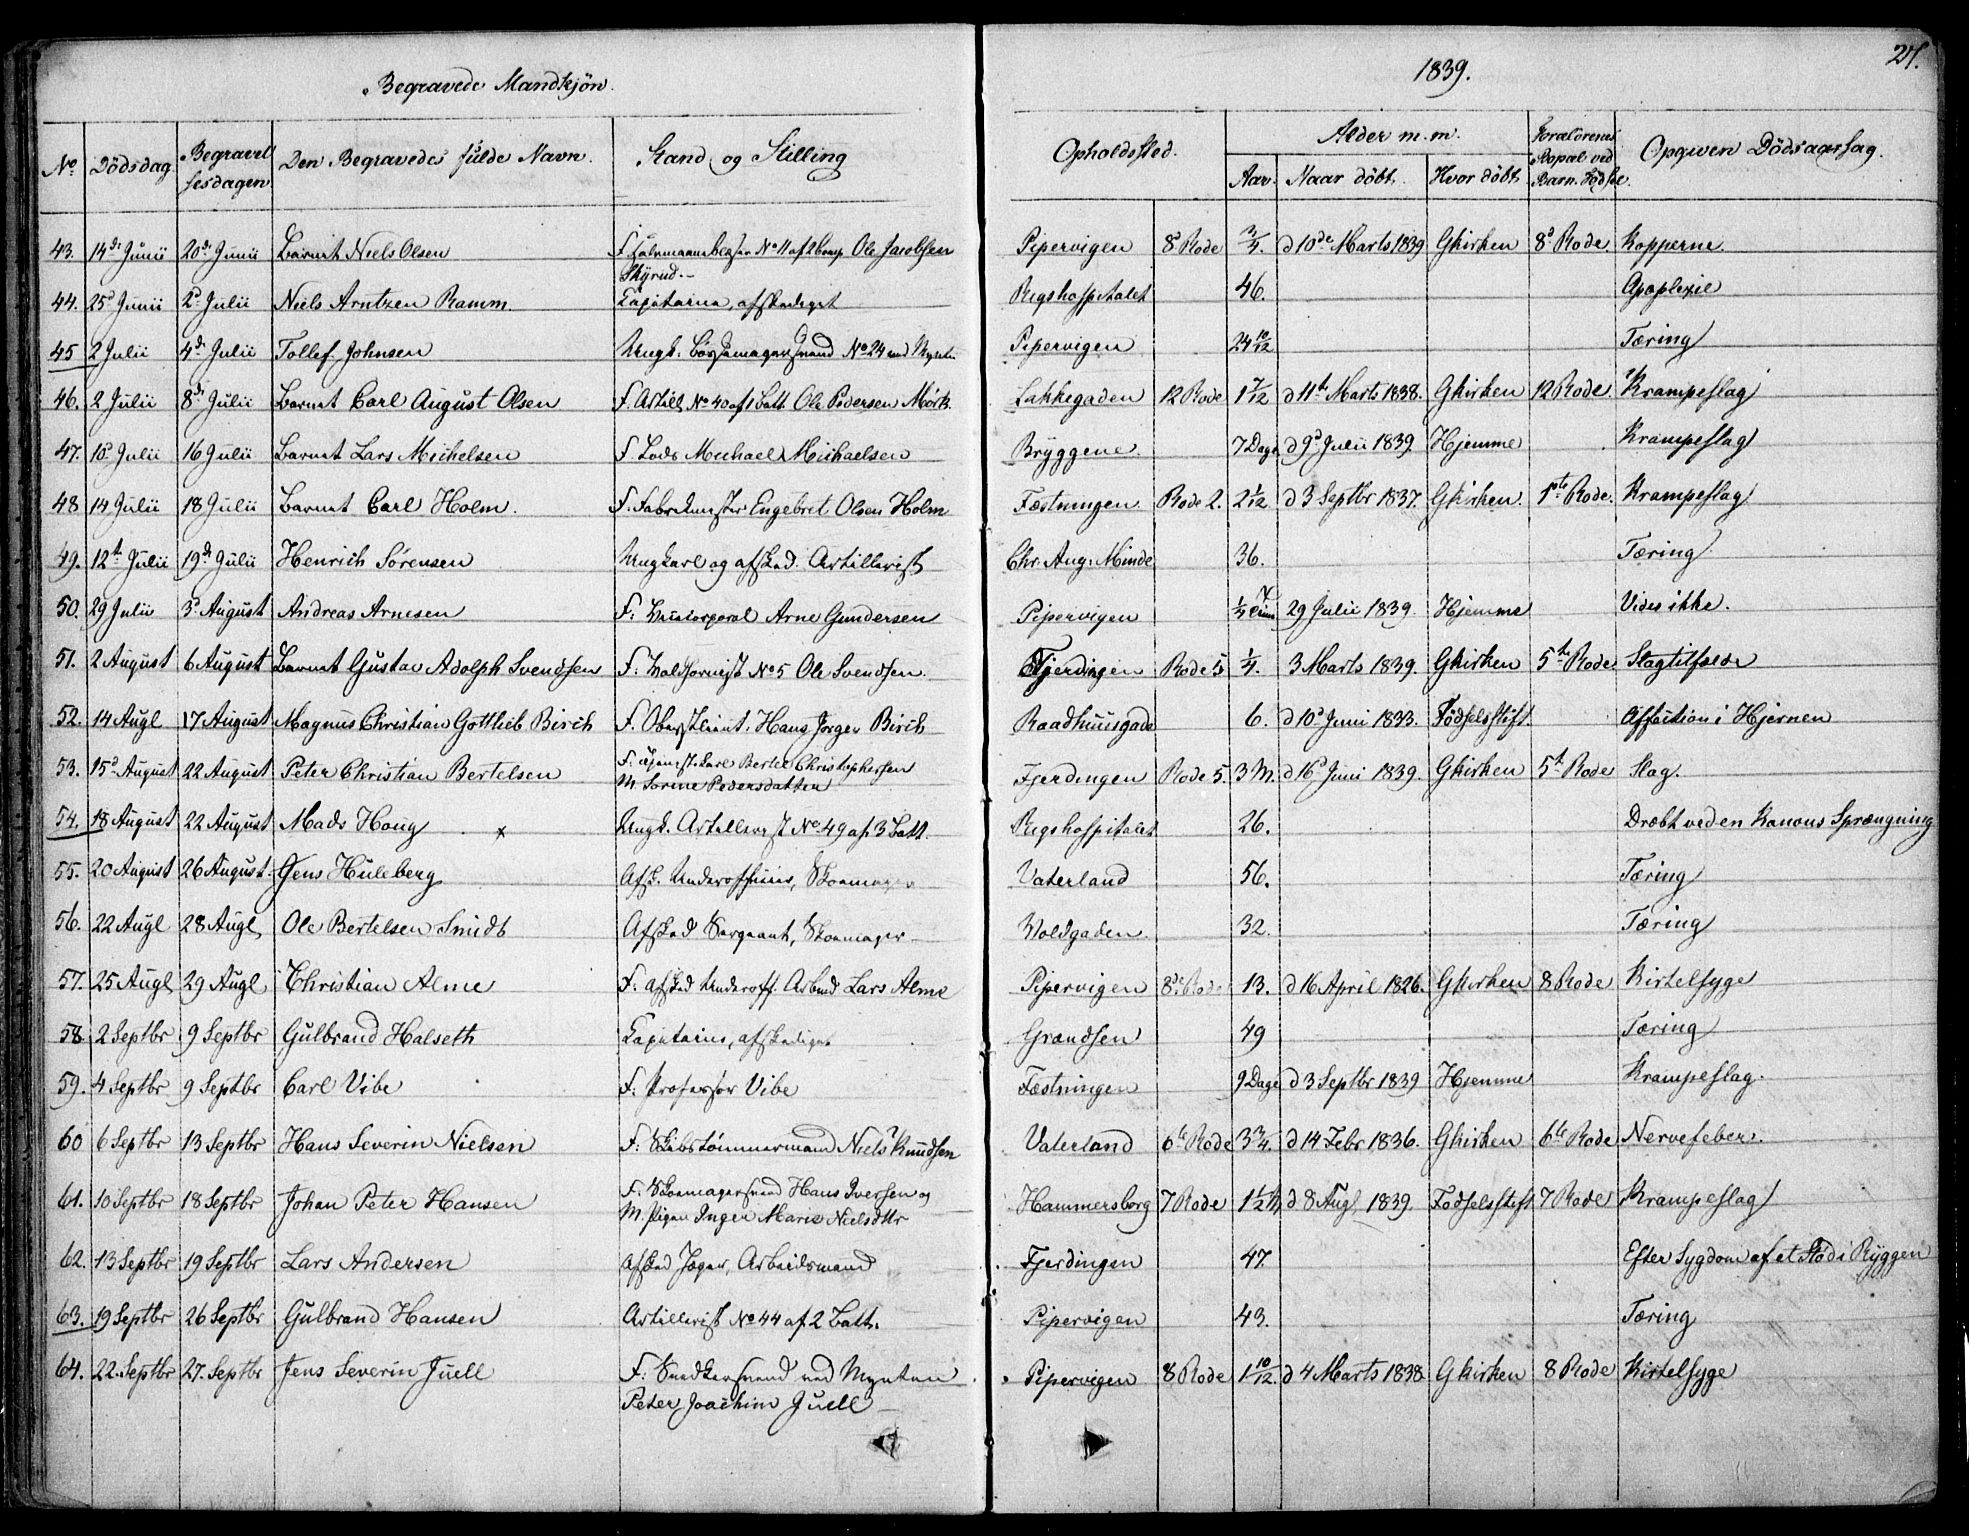 Begravede Mandkjøn.
1839.
27.
No
Dödsdag
Begravelsesdagen
Den Begravedes fulde Navn.
Stand og Stilling
Opholdssted.
Alder m.m.
Aar.
Naar döbt.
Hvor döbt
Forældrenes Bopal ved Barn. Födsel.
Opgiven Dödsaarsag.
43. 14de Junii 20de Junii Barnet Niels Olsen F. No 11 af 2 Comp Ole Jacobsen Pipervigen 8de Rode 3/4. d 10de Marts 1839 Gkirken 8de Rode. Kopperne.
Skÿrud.
44. 25de Junii 2de Julii Niels Arntzen Ramm. Capitaine, afskediget Rigshospitalet 46. Apoplexie
45 2 Julii 4de Julii Tollef Johnsen Ungk. Børsemagersvend No 24 ved Mynten Pipervigen 24 10/12 Tæring
46. 2 Julii 8de Julii Barnet Carl August Olsen F. Artill. No 40 af 1 Batt. Ole Pedersen Mörk. Lakkegaden 12 Rode 1 7/12 d 11te Marts 1838. Gkirken 12 Rode. Krampeslag
47. 10de Julii 16 Julii Barnet Lars Michelsen F. Lods Michael Michaelsen Brÿggene. 7 Dage d 9de Julii 1839. Hjemme Krampeslag
48 14 Julii 18 Julii Barnet Carl Holm. F. Engebret Olsen Holm Fæstningen Rode 2. 2 1/12 d 3 Septbr 1837. Gkirken. 1ste Rode. Krampeslag
49. 12te Julii 19de Julii Henrich Sörensen Ungkarl og afsked. Artillerist Chr. Aug: Minde 36. Tæring
50. 29 Julii 3de August Andreas Arnesen F: Arne Gundersen Pipervigen 1/4 Time 29 Julii 1839. Hjemme Vides ikke.
51. 2 August 6 August Barnet Gustav Adolph Svendsen F: Valdhornist No 5 Ole Svendsen. Fjerdingen Rode 5 1/4. 3 Marts 1839. Gkirken 5te Rode. Slagtilfælde
52. 14 Augl 17 August Magnus Christian Gottlieb Birch F. Oberstlieut. Hans Jörgen Birch Raadhuusgade 6. d 10de Juni 1833. Födselsstift. Affection i Hjernen
53. 15de August 22 August Peter Christian Bertelsen F: Tjenestekarl Bertel Christophersen Fjerdingen Rode 5. 3 M. d 16de Juni 1839. Gkirken 5te Rode Slag.
M. Sorine Pedersdatter
54. 18 August 22 August Mads Houg x Ungk. Artillerist No 49 af 3 Batt. Rigshospitalet 26. Dræbt ved en Kanons Sprængning
55. 20 August 26 August. Jens Huleberg Afsk. Underofficier, Skomager Vaterland 56. Tæring
56. 22 Augl 28 Augl, Ole Bertelsen Smidt Afsked Sergeant, Skomager Voldgaden. 32. Tæring
57. 25 Augl 29 Augl Christian Alme F. afsked Underoff. Arbmd Lars Alme Pipervigen 8de Rode 13. d 16 April 1826. Gkirken 8 Rode Kirtelsyge
58 2 Septbr 9 Septbr Gulbrand Halseth Capitaine, afskediget Grændsen 49 Tæring
59. 4 Septbr 9 Septbr Carl Vibe F. Professor Vibe Fæstningen 9 Dage d 3 Septbr 1839 Hjemme Krampeslag.
60 6 Septbr 13 Septbr Hans Severin Nielsen F. Skibstömmermand Niels Knudsen Vaterland 6te Rode 3 3/4. d 14 Febr 1836. Gkirken 6te Rode Nervefeber.
61. 10 Septbr 18 Septbr Johan Peter Hansen F. Skomagersvend Hans Iversen og Hammersborg 7 Rode 1 1/2 M d 8 Augl 1839. Fodselsstift 7 Rode Krampeslag
M. Pigen Inger Marie Nielsdttr
62. 13 Septbr 19 Septbr Lars Andersen Afsked Jæger, Arbeidsmand Fjerdingen 47. Efter Sygdom af et Stöd i Rÿggen
63. 19 Septbr 26 Septbr Gulbrand Hansen Artillerist No 44 af 2 Batt. Pipervigen 43. Tæring
64. 22 Septbr 27. Septbr Jens Severin Juell F. Snedkersvend ved Mynten Pipervigen 8 Rode 1 10/12. d 4 Marts 1838 Gkirken 8 Rode Kirtelsyge
Peter Joachim Juell